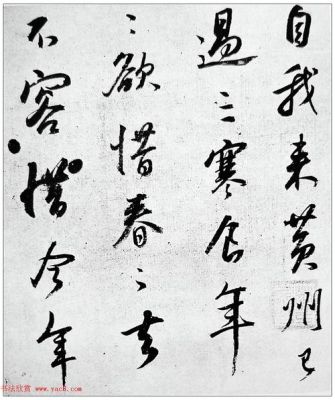 自我來黃州已
過三寒食年
〻欲惜春〻去
不容惜今年
书法欣赏 www.yac8.com